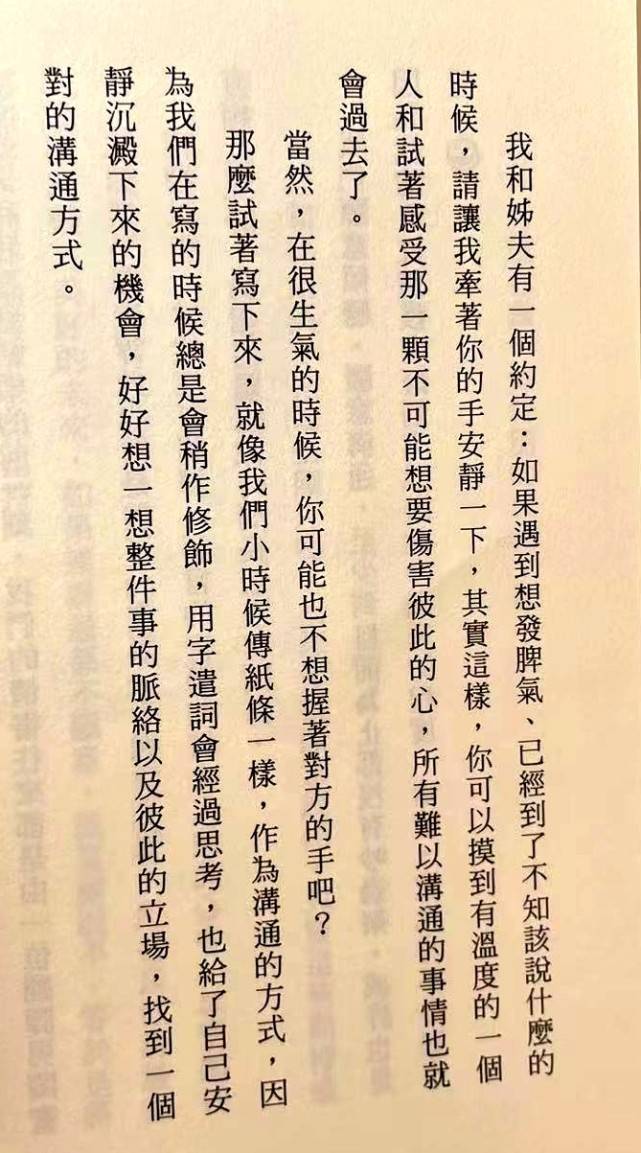 我和姊夫有一個約定：如果遇到想發脾氣、已經到了不知該說什麼的
時候，請讓我牽著你的手安靜一下，其實這樣，你可以摸到有溫度的一個
人和試著感受那一顆不可能想要傷害彼此的心，所有難以溝通的事情也就
會過去了。
當然，在很生氣的時候，你可能也不想握著對方的手吧？
那麼試著寫下來，就像我們小時候傳紙條一樣，作為溝通的方式，因
為我們在寫的時候總是會稍作修飾，用字遣詞會經過思考，也給了自己安
靜沉澱下來的機會，好好想一想整件事的脈絡以及彼此的立場，找到一個
對的溝通方式。